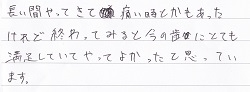 長い間やってきて痛い時とかもあった
けれど終わってみると今の歯にとても
満足していてやってよかったと思ってい
ます。